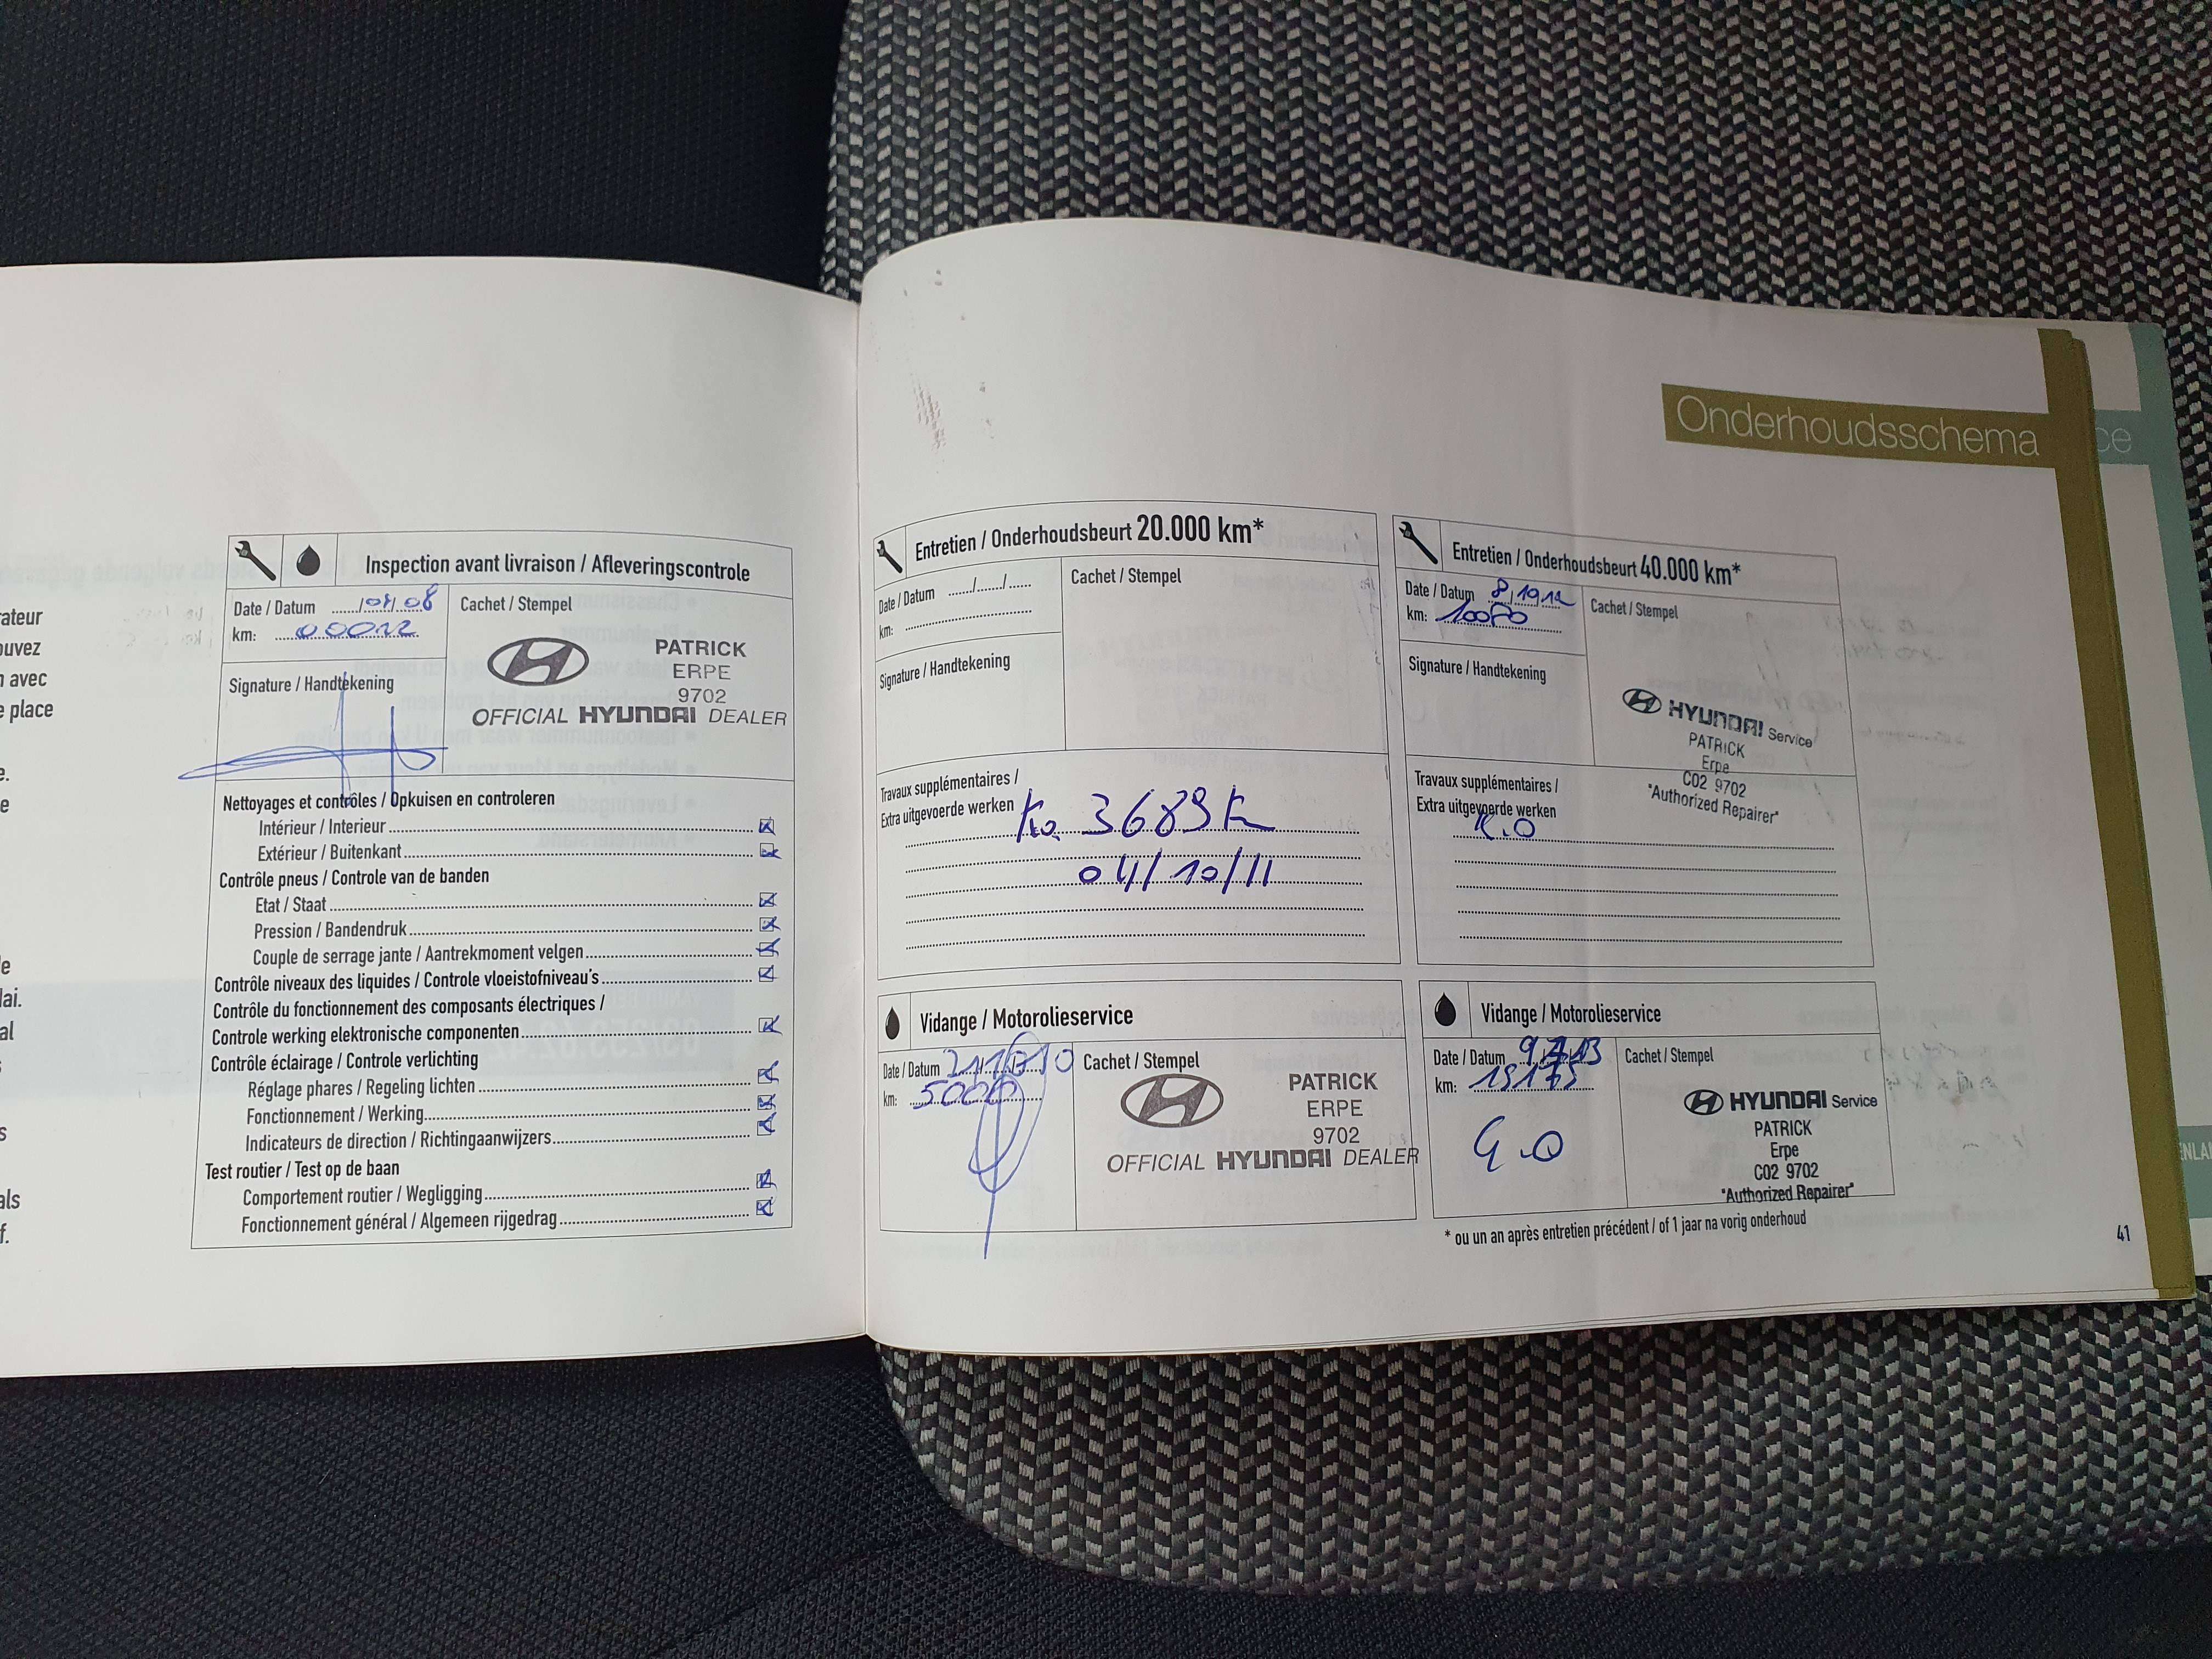 ateur
ouvez
n avec
e place
e.
e
e
lai.
al
s
s
als
f.
Inspection avant livraison / Afleveringscontrole
Date / Datum ....../04/08
km: 00012
Cachet / Stempel
Signature / Handtekening
PATRICK
ERPE
9702
OFFICIAL HYUNDAI DEALER
Nettoyages et contrôles / Opkuisen en controleren
Intérieur / Interieur
Extérieur / Buitenkant
Contrôle pneus / Controle van de banden
Etat / Staat
Pression / Bandendruk
Couple de serrage jante / Aantrekmoment velgen
Contrôle niveaux des liquides / Controle vloeistofniveau's
Contrôle du fonctionnement des composants électriques /
Controle werking elektronische componenten
Contrôle éclairage / Controle verlichting
Réglage phares / Regeling lichten
Fonctionnement / Werking
Indicateurs de direction / Richtingaanwijzers
Test routier / Test op de baan
Comportement routier / Wegligging
Fonctionnement général / Algemeen rijgedrag
Onderhoudsschema
ce
Entretien / Onderhoudsbeurt 20.000 km*
Date / Datum ....../....../......
km:
Cachet / Stempel
Signature / Handtekening
Travaux supplémentaires /
Extra uitgevoerde werken
3689
04/10/11
Entretien / Onderhoudsbeurt 40.000 km*
Date / Datum
km:
Cachet / Stempel
Signature / Handtekening
HYUNDAI Service
PATRICK
Erpe
C02 9702
"Authorized Repairer"
Travaux supplémentaires /
Extra uitgevoerde werken
Vidange / Motorolieservice
Date / Datum
km: 5000
Cachet / Stempel
PATRICK
ERPE
9702
OFFICIAL HYUNDAI DEALER
Vidange / Motorolieservice
Date / Datum
km: 15175
Cachet / Stempel
HYUNDAI Service
PATRICK
Erpe
C02 9702
"Authorized Repairer"
* ou un an après entretien précédent / of 1 jaar na vorig onderhoud
41